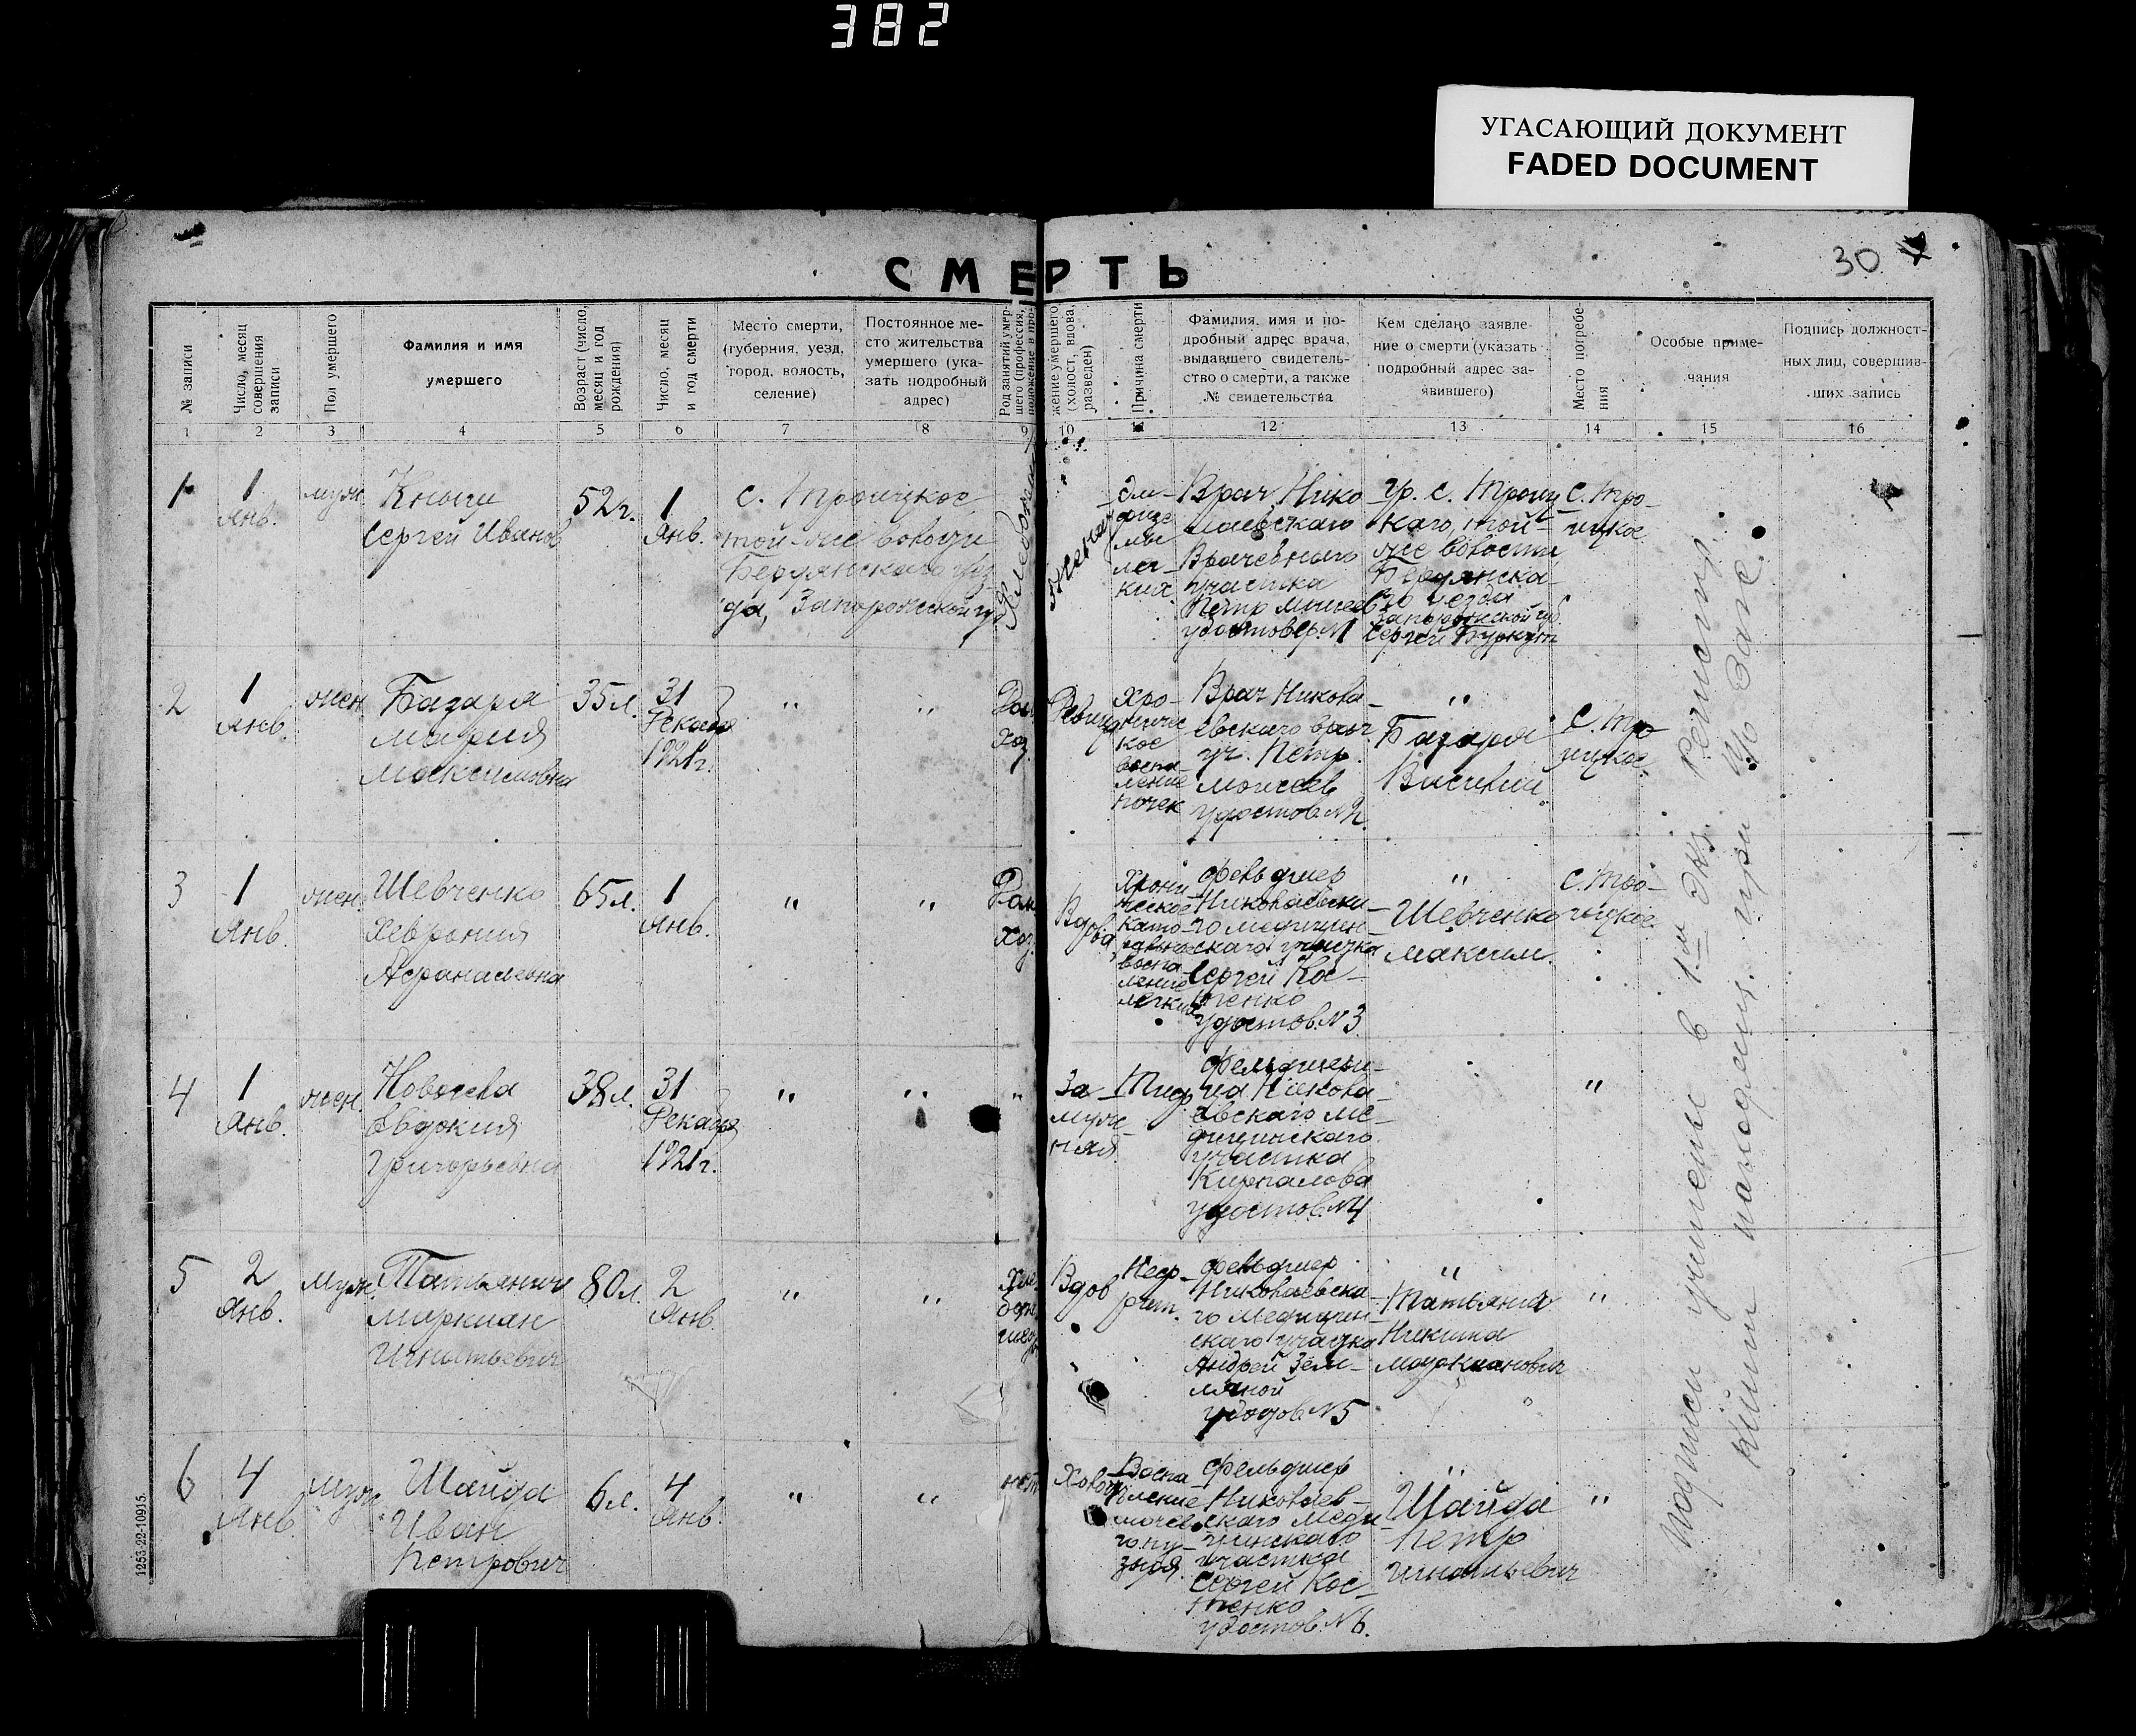 382
УГАСАЮЩИЙ ДОКУМЕНТ
FADED DOCUMENT
30
СМЕРТЬ
№ записи
Число, месяц
совершения
записи
Пол умершего
Фамилия и имя
умершего
Возраст (число,
месяц и год
рождения)
Число, месяц
и год смерти
Место смерти,
(губерния, уезд,
город, волость,
селение)
Постоянное ме-
сто жительства
умершего (ука-
зать подробный
адрес)
Род занятий умер-
шего (профессия,
положение в про-
жение умершего
(холост, вдова,
разведен)
Причина смерти
Фамилия, имя и по-
дробный адрес врача,
выдавшего свидетель-
ство о смерти, а также
№ свидетельства
Кем сделано заявле-
ние о смерти (указать
подробный адрес за-
явившего)
Место погребе-
ния
Особые приме-
чания
Подпись должност-
ных лиц, совершив-
ших запись
1 2 3 4 5 6 7 8 9 10 11 12 13 14 15 16
1
1
Янв.
муж.
Сергей Иванов
52г.
1
Янв.
с. Троицкое
той-же волости
Бердянского уез-
да, Запорожской гу
женат
Эм-
физе
мы
лег-
ких
Врач Нико
лаевского
Врачебного
участка
Петр Моисеев
удостовер. №1
гр. с. Троиц
кого, той-
же волости
Бердянска-
го уезда
Запорожской губ.
Сергей Буркут
с. Тро-
ицкое
2
1
Янв.
жен.
Базаря
Мария
Максимовна
35л.
31
Декабря
1921г.
"
"
Дом
хоз.
Девица
Хро-
ничес
кое
воспа-
ление
почек
Врач Никола-
евского врач.
уч. Петр
Моисеев
удостов. №2.
"
Базаря
Василий
с. Тро
ицкое
3
1
Янв.
жен.
Шевченко
Хеврония
Афанасьевна
65л.
1
Янв.
"
"
Дом
хоз.
Вдова
Хрони
ческое
воспа-
ление
легких
Фельдшер
Николаевска-
го медицин-
ского участка
Сергей Кос-
тенко
удостов. №3
"
Шевченко
Максим.
с. Тро-
ицкое
4
1
Янв.
жен.
Евдокия
Григорьевна
38л.
31
Декабря
1921г.
"
"
"
За-
муж-
няя
Тиф
Фельдшери-
ца Никола-
евского ме-
дицинского
участка
удостов. №4
"
5
2
Янв.
муж.
Маркиан
Игнатьевич
80л.
2
Янв.
"
"
Вдов
Неф-
рит.
Фельдшер
Николаевска-
го Медицин-
ского участка
Андрей Зем-
ляной
удостов. №5
"
Никита
Маркианович
"
6
4
Янв.
муж.
Шайда
Иван
Петрович
6л.
4
Янв.
"
"
нет
Холост
Воспа-
ление
мочев
го пу-
зыря.
Фельдшер
Николаев-
ского меди-
цинского
участка
Сергей Кос-
тенко
удостов. №6.
"
Шайда
Петр
Игнатьевич
"
Надписи учинены в 1-м экз. Регистр.
книги находящ. при
1253-22-10915